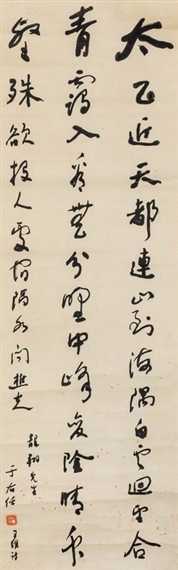 太乙近天都連山到海隅白雲迴望合
青靄入看無分野中峰變陰晴众
壑殊欲投人處宿隔水問樵夫
龍翔先生
于右任
王維詩